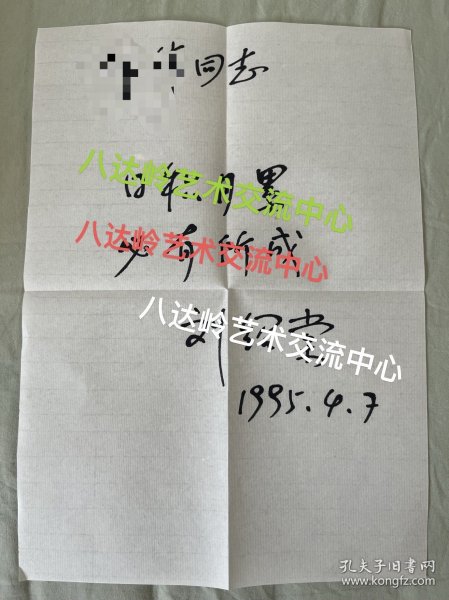 同志
八达岭艺术交流中心
日积月累
八达岭艺术交流中心
必有所成
八达岭艺术交流中心
刘炳森
1995.4.7
孔夫子旧书网
www.kongfz.com